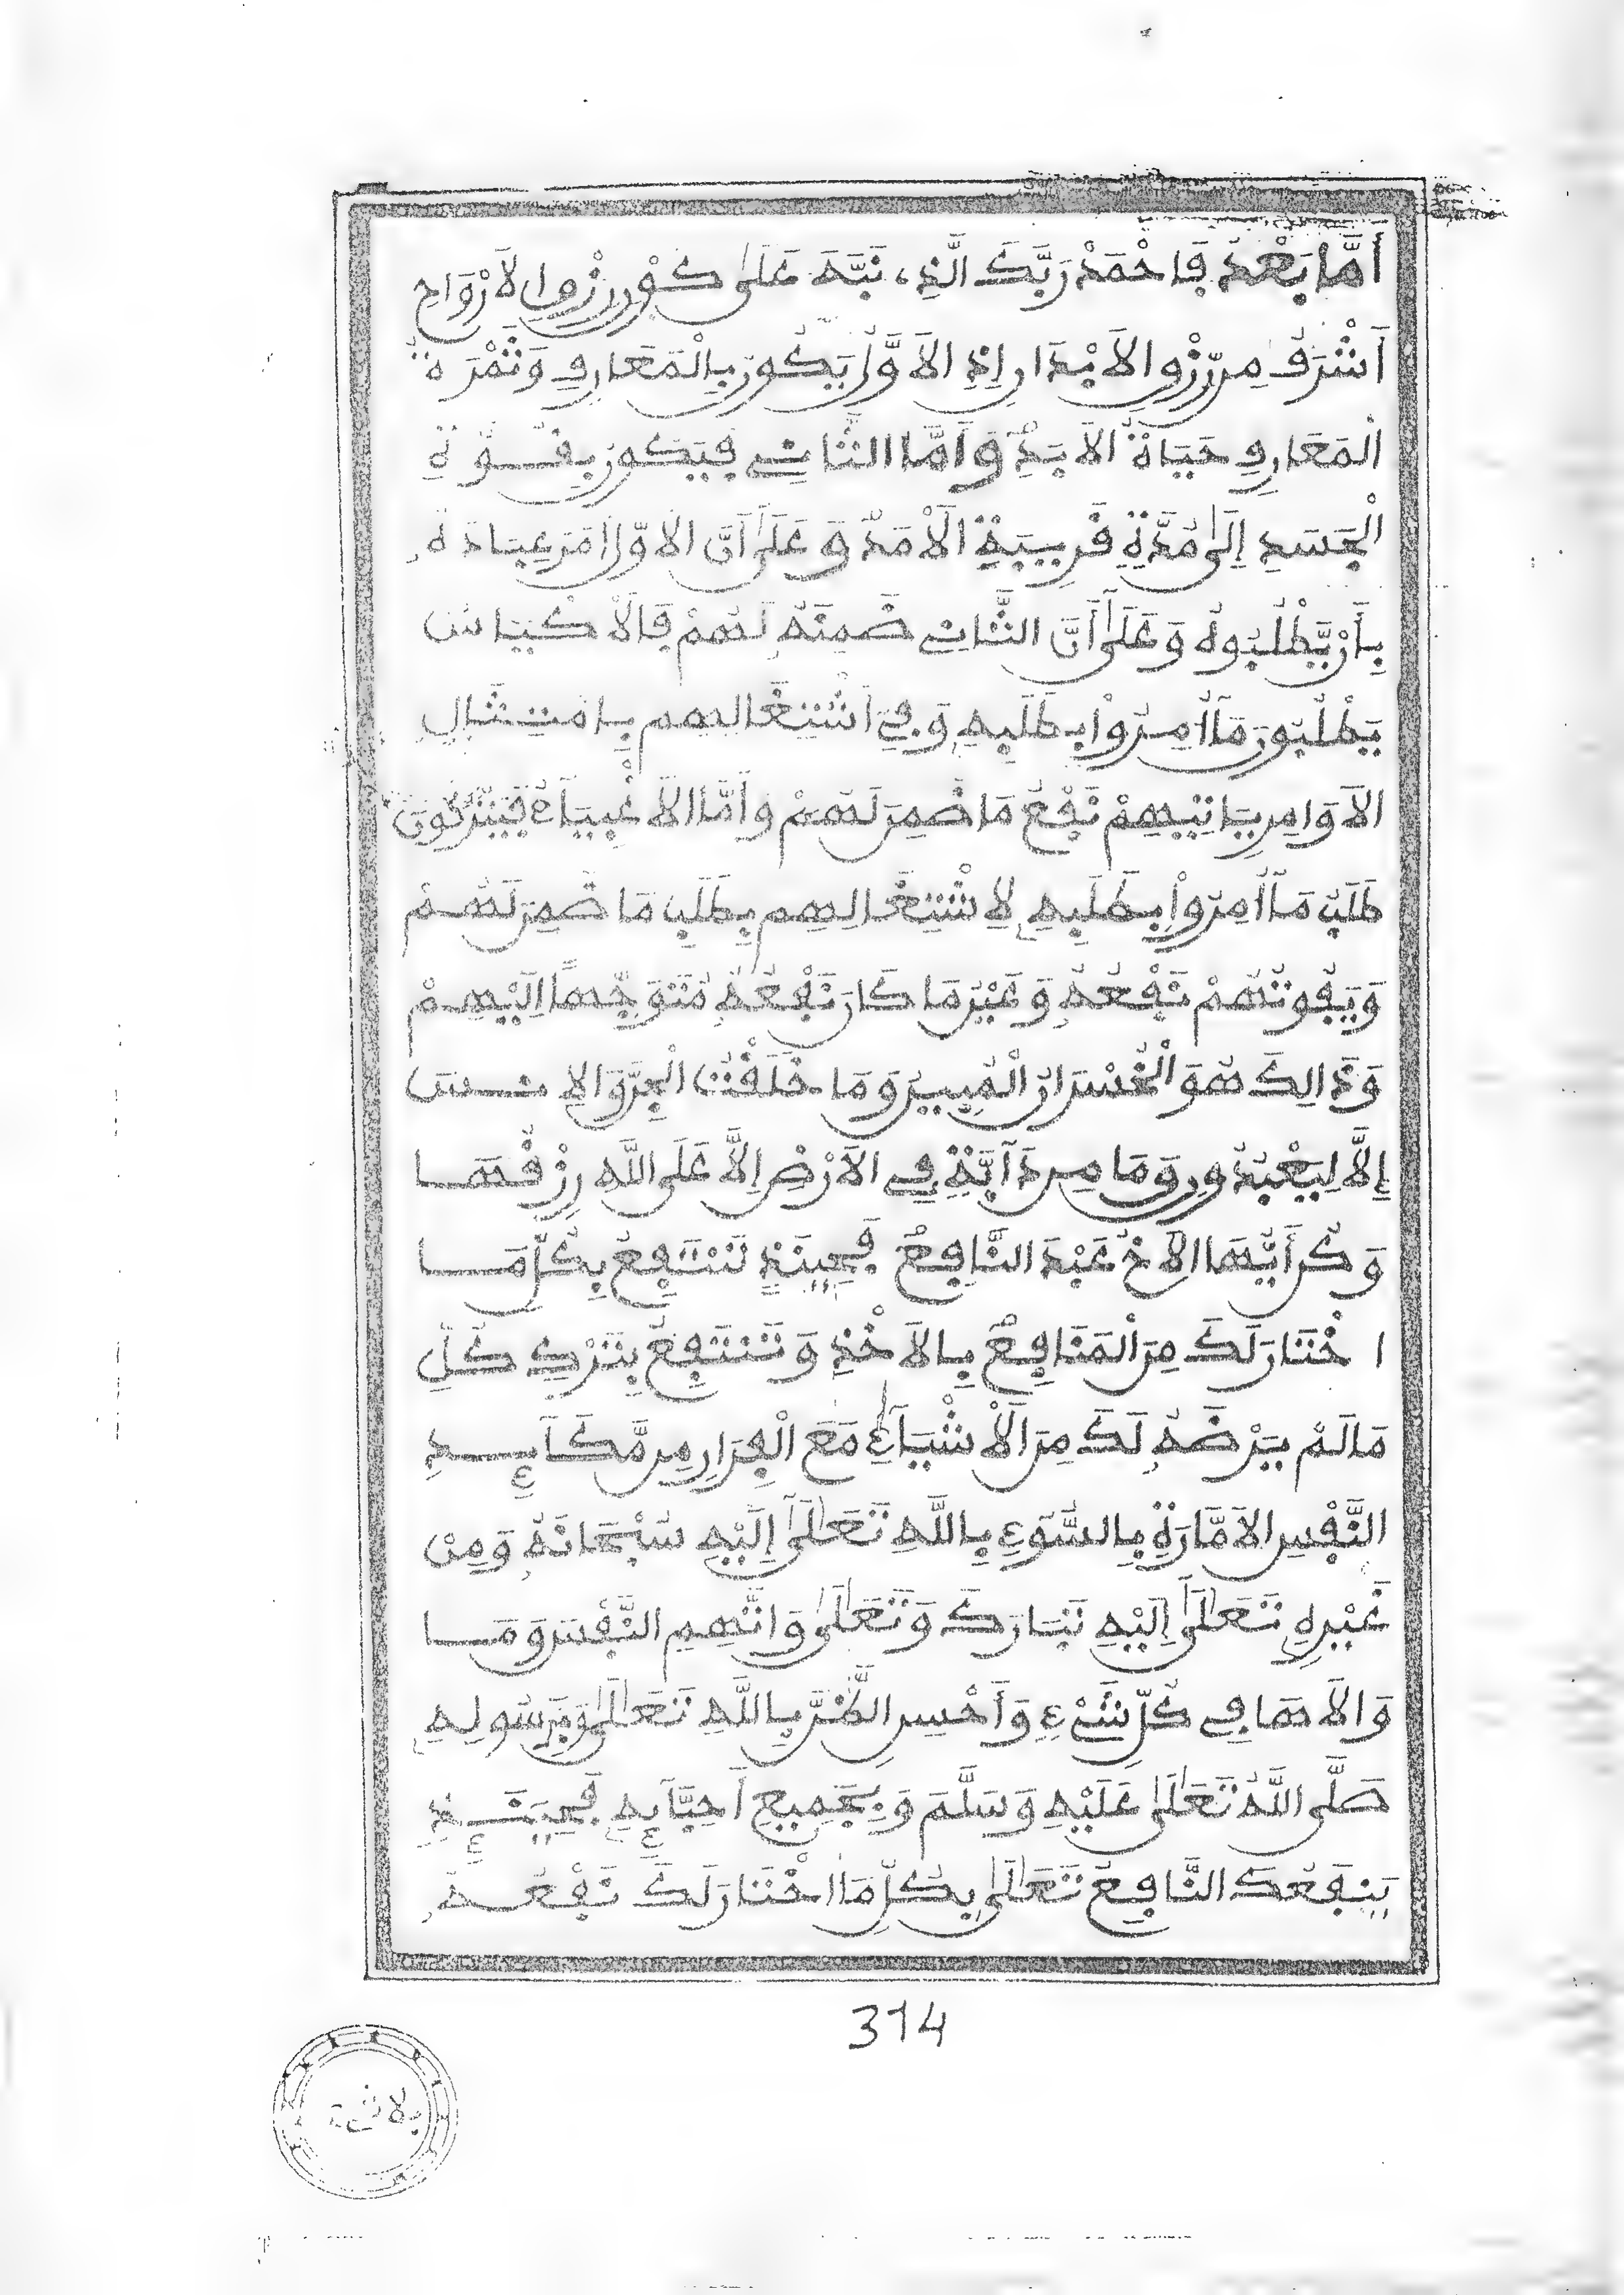 أَمَّا بَعْدُ فَاحْمَدْ رَبَّكَ الَّذِي نَبَّهَ عَلَى كَوْنِ رِزْقِ الاَرْوَاحِ
أَشْرَفَ مِن رِّزْقِ الاَبْدَانِ إِذِ الاَوَّلُ يَكُونُ بِالْمَعَارِفِ وَثَمْرَةُ
الْمَعَارِفِ حَيَاةُ الاَبَدِ وَأَمَّا الثَّانِي فَيَكُونُ بِقُوَّةِ
الْجَسَدِ إِلَى مُدَّةٍ قَرِيبَةِ الْأَمَدِ وَعَلَى أَنَّ الاَوَّلَ أَمَرَ عِبَادَهُ
بِأَنْ يَّطْلُبُوهُ وَعَلَى أَنَّ الثَّانِي ضَمِنَهُ لَهُمْ فَالْأَكْيَاسُ
يَطْلُبُونَ مَا أُمِرُواْ بِطَلَبِهِ وَفِي اشْتِغَالِهِم بِامْتِثَالِ
الاَوَامِرِ يَاتِيهِمْ نَفْعُ مَا ضُمِنَ لَهُمْ وأَمَّا الاَغْبِيَاءُ فَيَتْرُكُونَ
طَلَبَ مَا أُمِرُواْ بِطَلَبِهِ لِاشْتِغَالِهِم بِطَلَبِ مَا ضُمِنَ لَهُمْ
وَيَفُوتُهُمْ نَفْعُهُ وَغَيْرُ مَا كَانَ نَفْعُهُ مُتَوَجِّهاً إِلَيْهِمْ
وَذَالِكَ هُوَ الْخُسْرَانُ الْمُبِينُ وَمَا خَلَقْتُ الْجِنَّ وَالإِنسَ
إِلَّا لِيَعْبُدُونِ وَمَا مِن دَآبَّةٍ فِي الاَرْضِ إِلَّا عَلَى اللَّهِ رِزْقُهَا
وَكُنْ أَيُّهَا الاَخُ عَبْدَ النَّافِعِ فَحِينَئِذٍ تَنْتَفِعُ بِكُلِّ مَا
اخْتَارَ لَكَ مِنَ الْمَنَافِعِ بِالاَخْذِ وَتَنْتَفِعُ بِتَرْكِ كُلِّ
مَا لَمْ يَرْضَهُ لَكَ مِنَ الْأَشْيَاءِ مَعَ الْفِرَارِ مِن مَّكَآئِدِ
النَّفْسِ الاَمَّارَةِ بِالسُّوءِ بِاللَّهِ تَعَالَى إِلَيْهِ سُبْحَانَهُ وَمِنْ
غَيْرِهِ تَعَالَى إِلَيْهِ تَبَارَكَ وَتَعَالَى وَاتَّهِمِ النَّفْسَ وَمَا
وَالاَهَا فِي كُلِّ شَيْءٍ وَأَحْسِنِ الظَّنَّ بِاللَّهِ تَعَالَى وَبِرَسُولِهِ
صَلَّى اللَّهُ تَعَالَى عَلَيْهِ وَسَلَّمَ وَبِجَمِيعِ أَحِبَّآئِهِ فَحِينَئِذٍ
يَنفَعُكَ النَّافِعُ تَعَالَى بِكُلِّ مَا اخْتَارَ لَكَ نَفْعُهُ
314